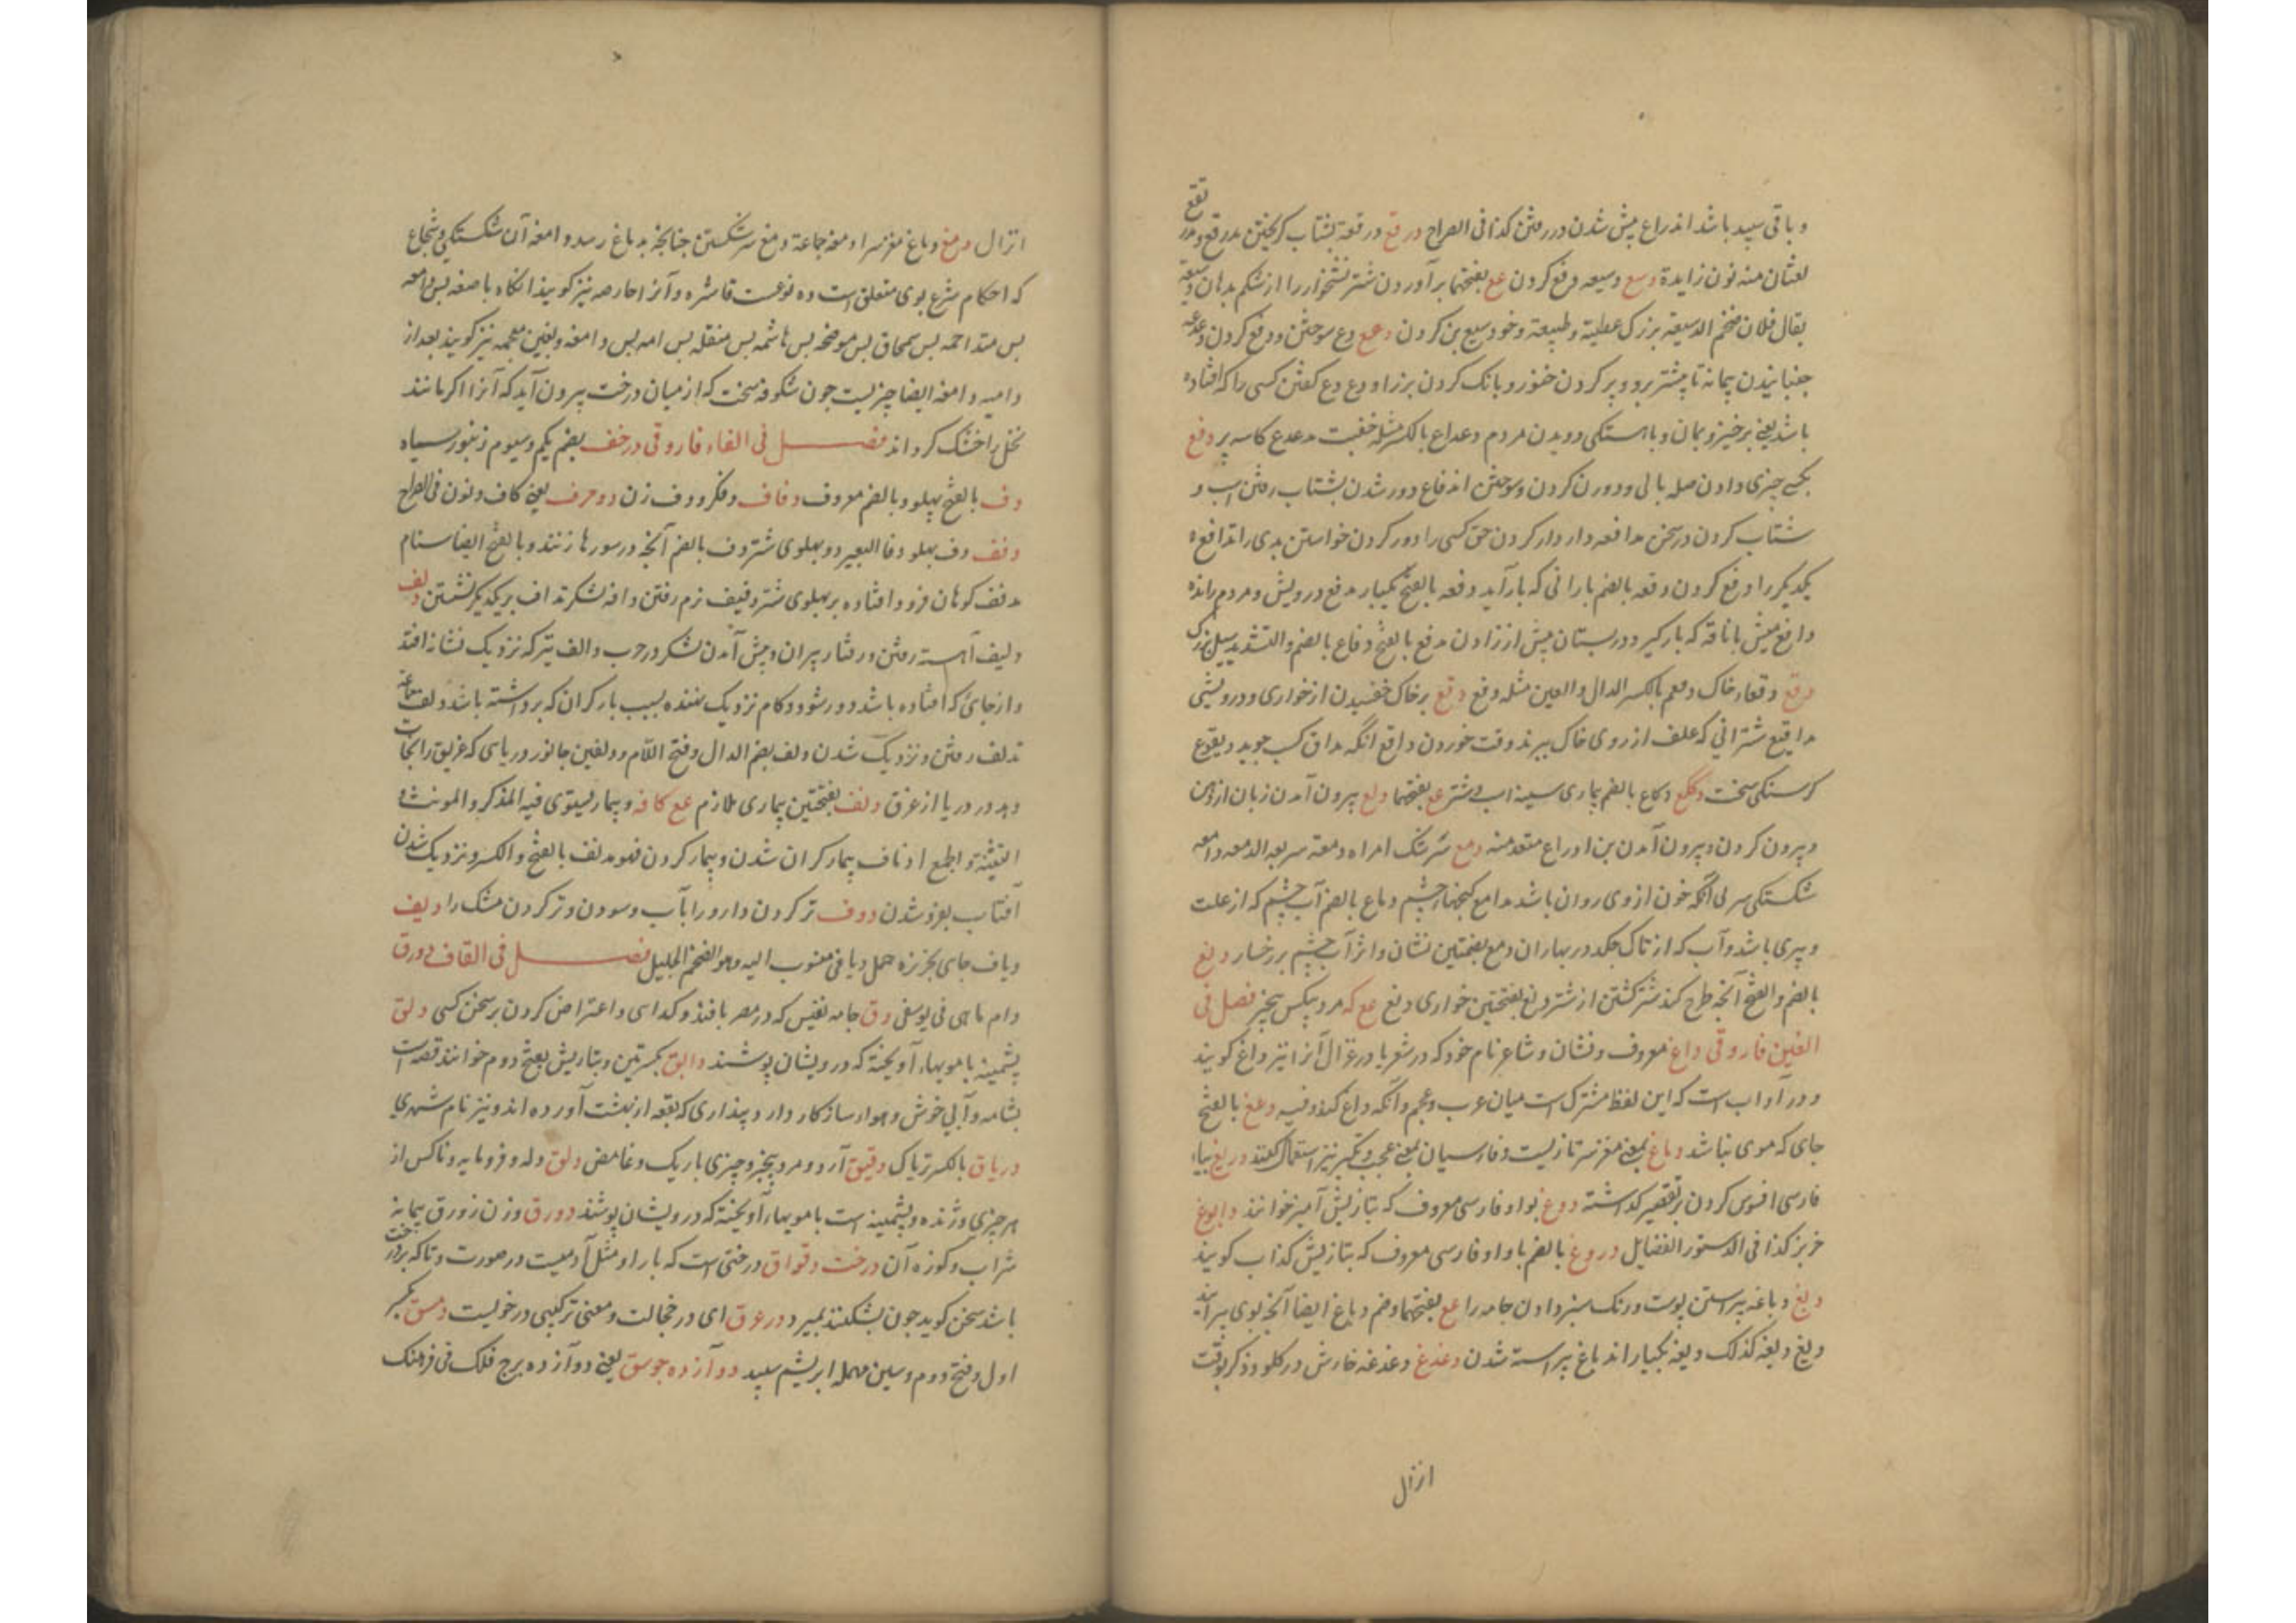 و باقی سپید باشد اندراع پیش شدن در رفتن کذا فی الصراح درقع درقعة بشتاب کریختن مدرقع و مدر
نقع
لعثان منه نون زایدة دسع دسیعه دفع کردن عع بفتحها برآوردن شتر نشخوار را از شکم بدهان دسیعة
یقال فلان ضخم الدسیعة بزرک عطیه و طبیعة و خود سیع بن کردن دعع دع سوختن و دفع کردن دعدعه
جنبانیدن پیمانه تا پیشتر برود و پر کردن خنور و بانک کردن بز را و دع دع کفتن کسی را که افتاده
باشد یعنی برخیز و بمان و باهستکی دویدن مردم دعداع بالکسر مثله خفیت مدعدع کاسه پر دفع
بکسی چیزی دادن صله بالی و دورن کردن و سوختن اندفاع دور شدن بشتاب رفتن اسب و
شتاب کردن در سخن مدافعه دار دار کردن حق کسی را دور کردن خواستن بدی را تدافع
یکدیکر را دفع کردن دفعه بالضم بارانی که بار آید دفعه بالفتح یکبار مدفع درویش و مردم رانده
دافع میش یا ناقه که بار کیرد در پستان پیش از زادن مدفع بالفتح دفاع بالضم و التشدید سیل بزرک
دقع دقعاء خاک دقعم بالکسر الدال و العین مثله دقع دقع بر خاک خفسیدن از خواری و درویشی
مداقیع شترانی که علف از روی خاک ببرند وقت خوردن داقع آنکه مداق کسب جوید دیقوع
کرسنکی سخت دکع دکاع بالضم بیماری سینه اسب و شتر عع بفتحها دلع بیرون آمدن زبان از دهن
و بیرون کردن و بیرون آمدن بن ادراع متعد منه دمع سرشک امراه دمعة سریعه الدمعه دامعه
شکستکی سر لی آنکه خون از وی روان باشد مدامع کنجهای چشم دماع بالضم آب چشم که از علت
و پیری باشد و آب که از تاک چکد در بهاران دمع بضمتین نشان و اثر آب چشم بر رخسار دنع
بالضم و الفتح آنچه طرح کند شترکشتن از شتر دنع بفتحتین خواری دنع عع که مرد بیکس بیچیز فصل فی
الغین فاروقی داغ معروف و نشان و شاعر نام خود که در شعر یا در غزال آنرا نیز داغ کویند
و در آداب است که این لفظ مشترک است میان عرب و عجم و آنکه داغ کند و فیه دغغ بالفتح
جای که موی نباشد دماغ بمعنی مغز سر تازیست و فارسیان بمعنی عجب و تکبر نیز استعمال کنند دریغ بیاء
فارسی افسوس کردن بر تقصیر کذاشته دوغ بواو فارسی معروف که بتازیش آمیز خوانند دابوغ
خربز کذا فی الدستور الفضایل دروغ بالضم با واو فارسی معروف که بتازیش کذاب کویند
دبغ دباغه پیراستن پوست و رنک سبز دادن جامه را عع بفتحها و ضم دباغ ایضا آنچه بوی پیرایند
دبغ دبغه کذلک دبغه یکبار اندباغ پیراسته شدن دغدغ دغدغه خارش در کلو و ذکر بوقت
انزال
انزال دمغ دماغ مغز سر ادمغه جماعة دمغ سر شکستن چنانچه بدماغ رسد دامغه آن شکستکی و شجاج
که احکام شرع بوی متعلق است ده نوعست قاشره و آنرا حارصه نیز کویند انکاه باضعه پس دامعه
پس متلاحمه پس سمحاق پس موضحه پس هاشمه پس منقله پس امه پس دامغه و بغین معجمه نیز کویند بعد از
دامیه دامغه ایضا چیزیست چون شکوفه سخت که از میان درخت بیرون آید که آنرا اکر مانند
نخل را خشک کرداند فصل فی الفاء فاروقی درخف بضم یکم و سیوم زنبور سیاه
دف بالفتح پهلو و بالضم معروف دفاف دفکر و دف زن دو حرف یعنی کاف و نون فی الصراح
دفف دف پهلو دفا البعیر دو پهلوی شتر دف بالضم آنچه در سورها زنند و بالفتح ایضا سنام
مدفف کوهان فرود افتاده بر پهلوی شتر دفیف نرم رفتن دافه لشکر تداف بر یکدیکر نشستن دلف
دلیف آهسته رفتن و رفتار پیران و پیش آمدن لشکر در حرب دالف تیر که نزدیک نشانه افتد
و از جائی که افتاده باشد دور شود و کام نزدیک نهنده بسبب بار کران که برداشته باشد دلف جماعة
تدلف رفتن و نزدیک شدن دلف بضم الدال و فتح اللام و دلفین جانور دریاءی که غریق را نجات
دهد در دریا از غرق دنف بفتحتین بیماری ملازم عع کافه و بیمار یستوی فیه المذکر و المونث و
التثنیة و الجمع ادناف بیمار کران شدن و بیمار کردن فهو مدنف بالفتح و الکسر و نزدیک شدن
آفتاب بفرو شدن دوف تر کردن دارو را بآب و سودن و تر کردن مشک را دیف
دیاف جای بجزیره جمل دیافی منسوب الیه و هو الضخم الجلیل فصل فی القاف دورق
دام ماهی فی یوسفی دق جامه نفیس که در مصر بافند و کدای و اعتراض کردن بر سخن کسی دلق
پشمینه با مویهاء آویخته که درویشان پوشند دابق بکسرتین و بتازیش بفتح دوم خوانند قصه است
بشامه و آبی خوش و هوار سازکار دارد پنداری که بقعه از بهشت آورده اند و نیز نام شهری
دریاق بالکسر تریاک دقیق آرد و مرد بیچیز و چیزی باریک و غامض دلق دله و فرومایه و ناکس از
هر چیزی و ژنده و پشمینه است با مویهاء آویخته که درویشان پوشند دورق وزن زورق پیمانه
شراب و کوزه آن درخت وقواق درختی است که بار او مثل آدمیست در صورت و تا که بر درخت
باشد سخن کوید چون بشکنند بمیرد در عرق ای در خجالت و معنی ترکیبی در خولیست دمسق بکسر
اول و فتح دوم و سین مهمله ابریشم سپید دو آزده جوسق یعنی دوآزده برج فلک فی فرهنک